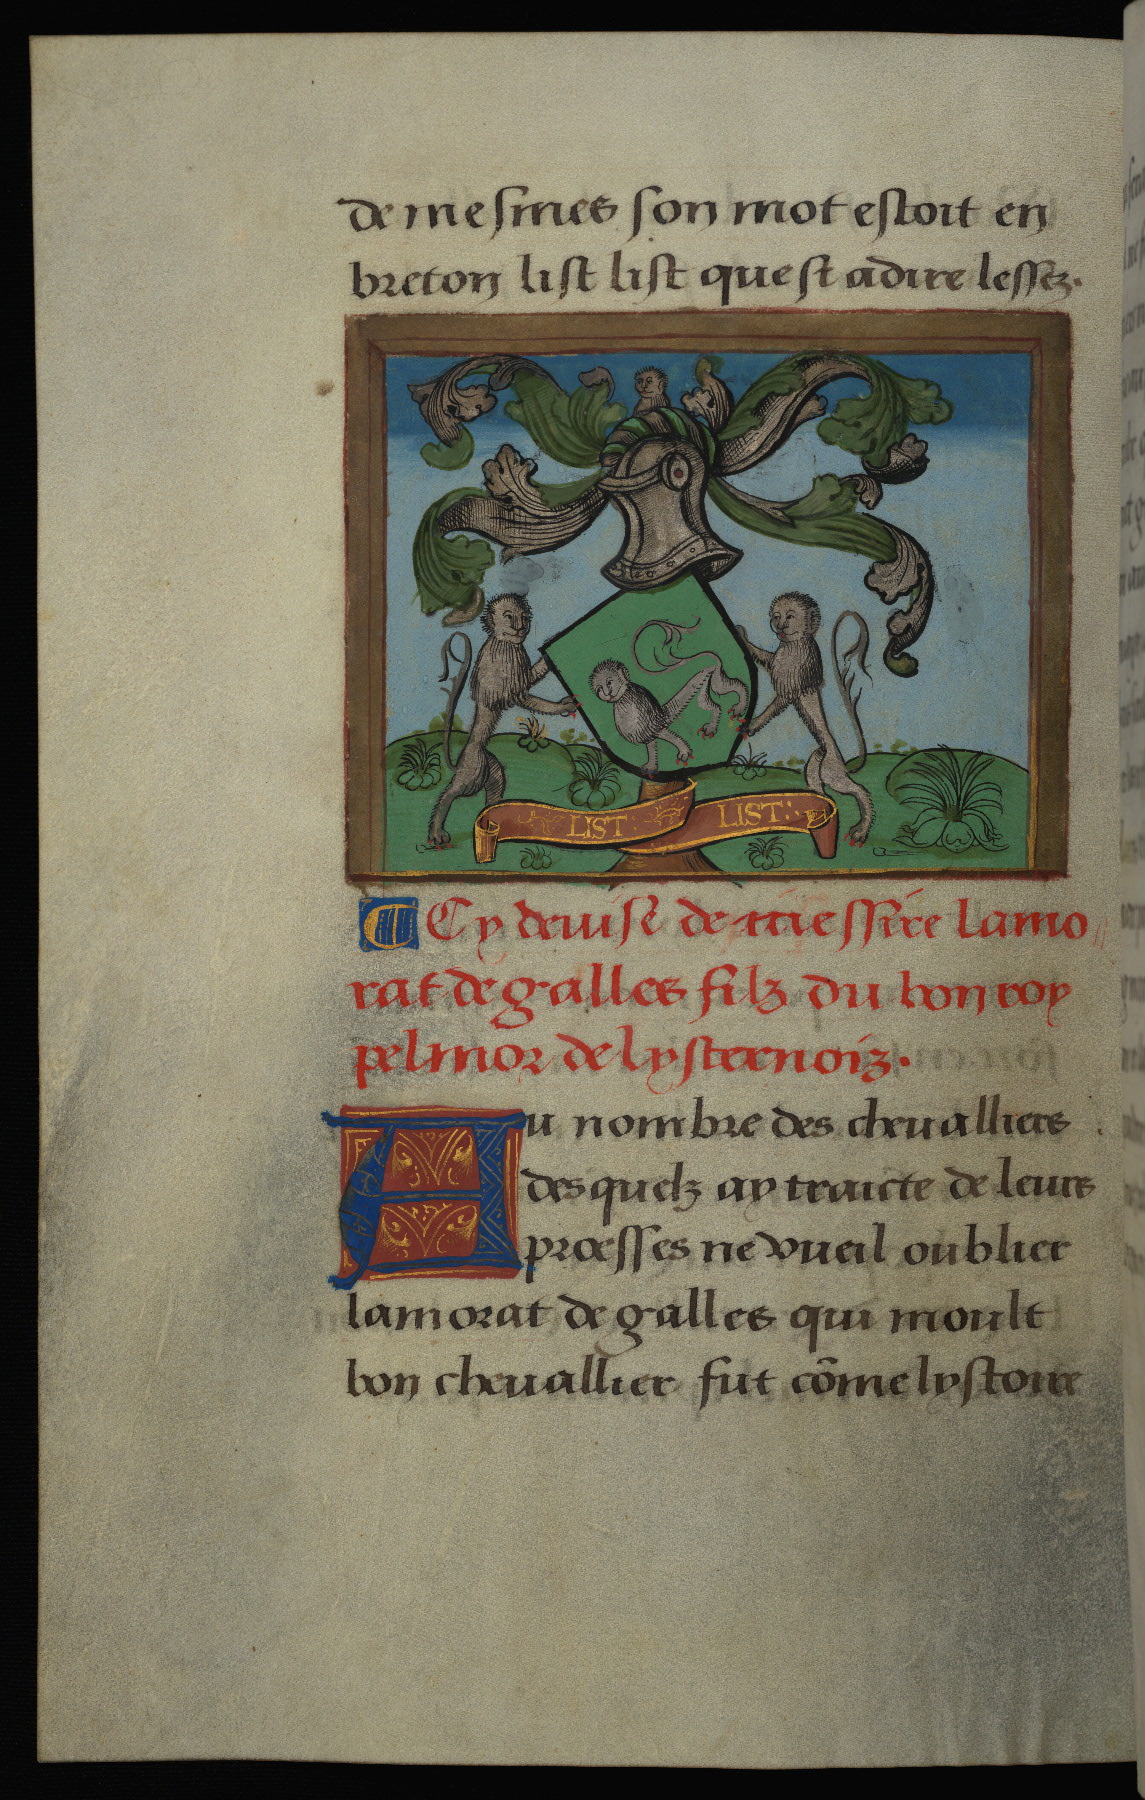 de mesmes son mot estoit en
breton list list quest adire lessez.
LIST: LIST:
Cy deuise de messire lamo
rat de galles filz du bon roy
pelinor de lysternoiz.
Au nombre des cheualliers
desquelz ay traicte de leurs
proesses ne vueil oublier
lamorat de galles qui moult
bon cheuallier fut cõme lystoire